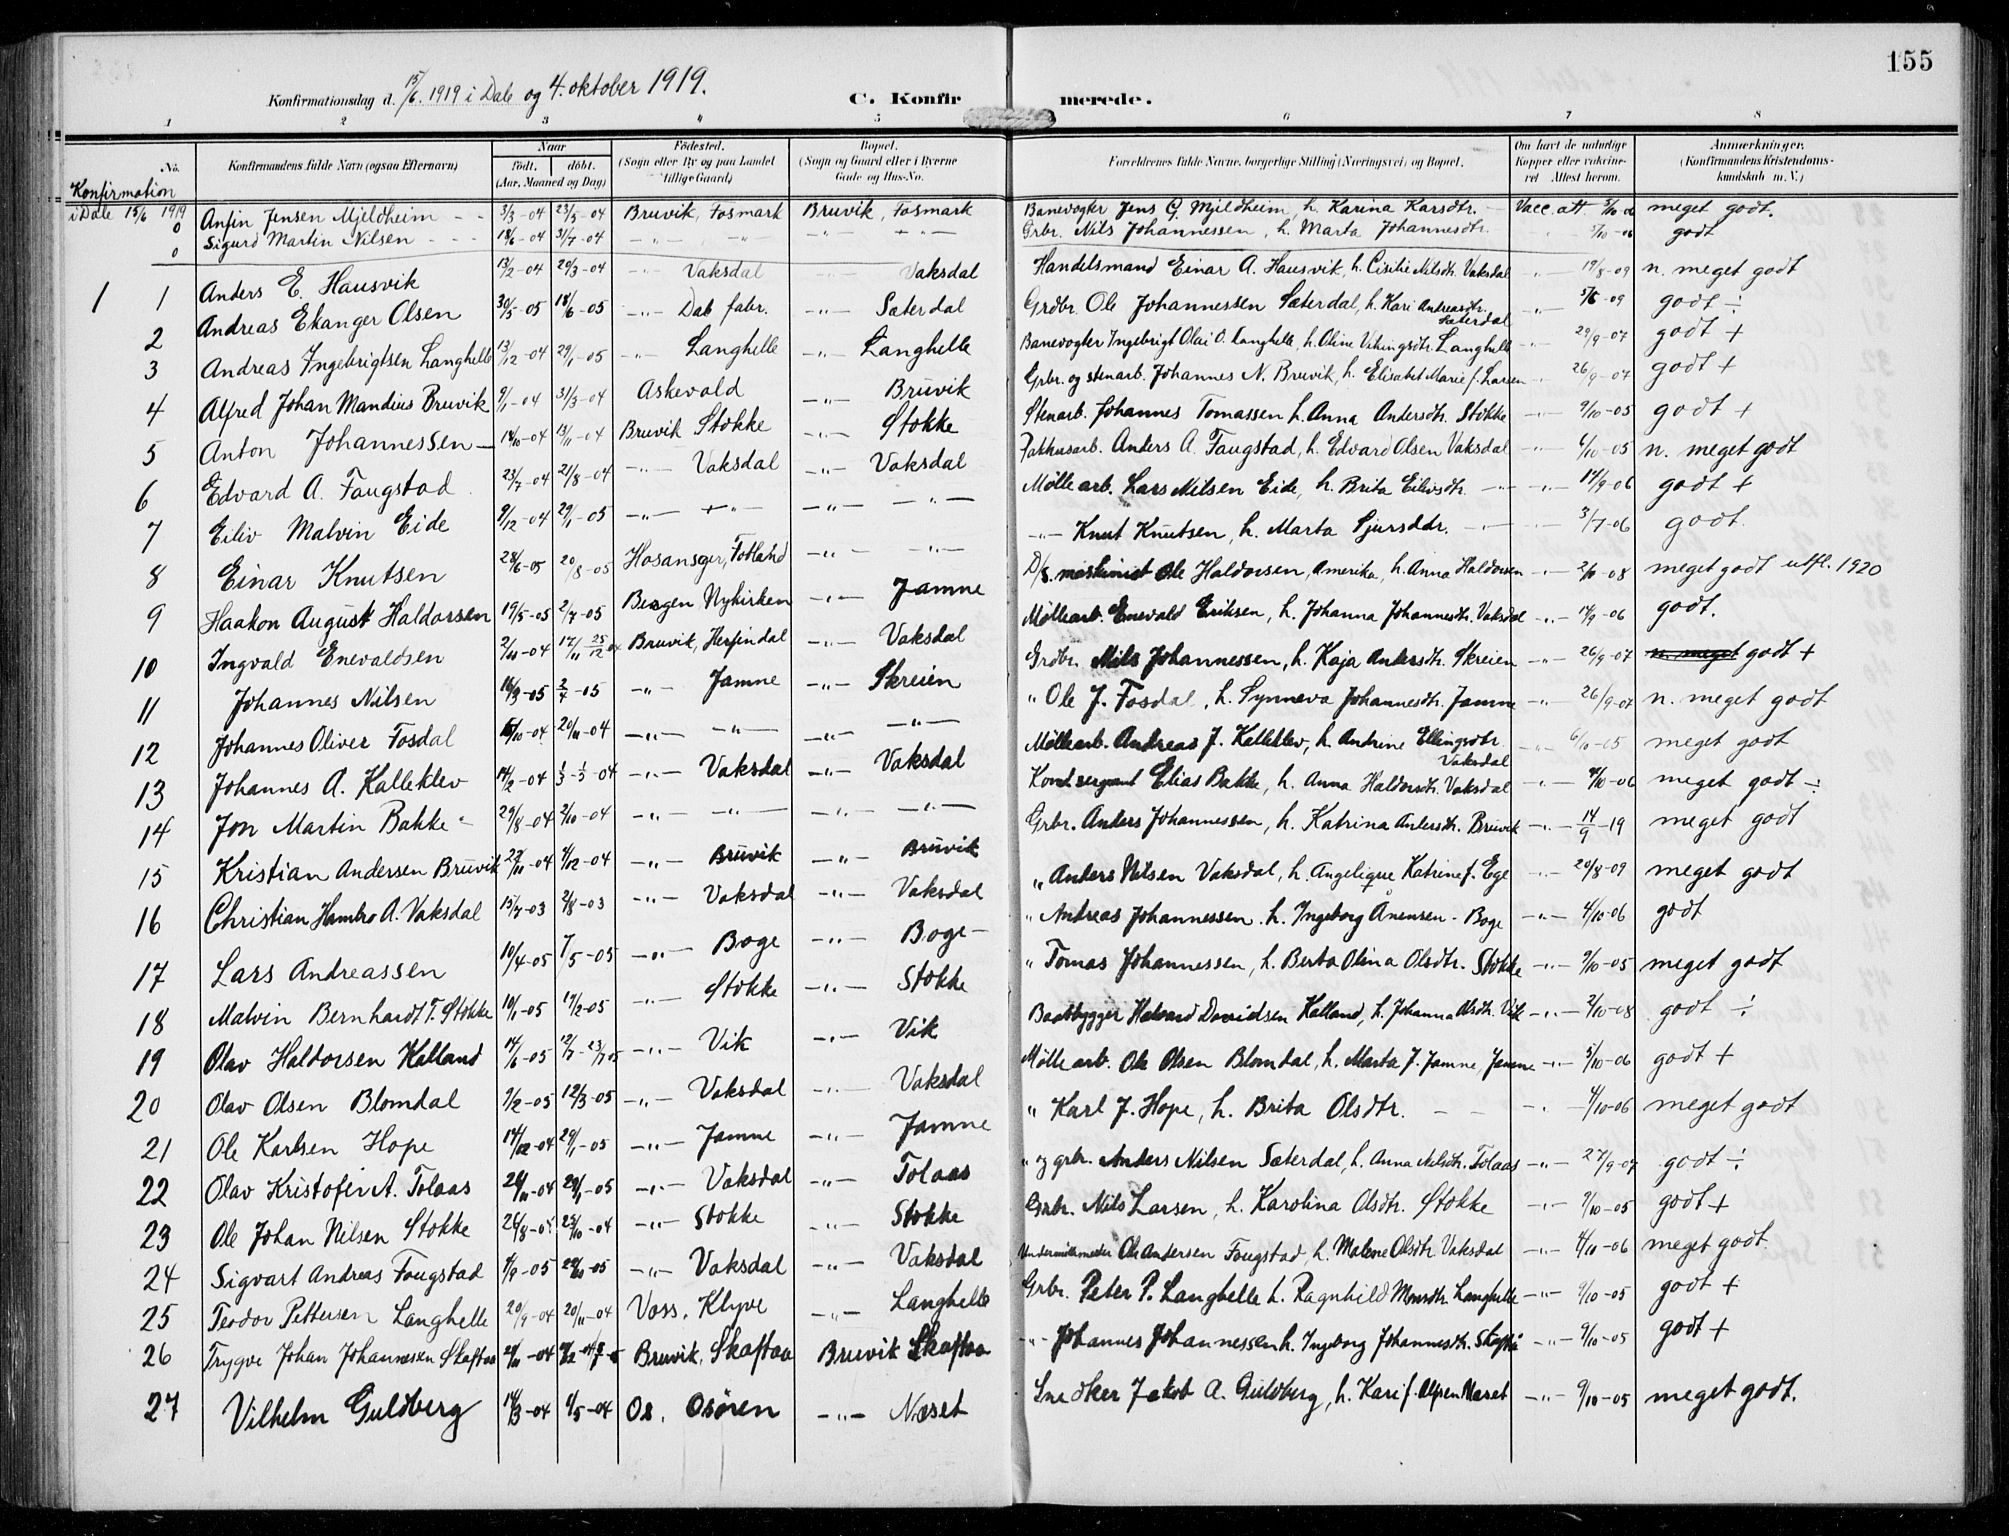 155
Konfirmationsdag d. 15/6. 1919 i Dale og 4. oktober 1919. C. Konfirmerede.
1 2 3 4 5 6 7 8
No. Konfirmandens fulde Navn (ogsaa Efternavn) Naar født. døbt. (Aar, Maaned og Dag) Fødested. (Sogn eller By og paa Landet tillige Gaard) Bopæl. (Sogn og Gaard eller i Byerne Gade og Hus-No. Forældrenes fulde Navne, borgerlige Stilling (Næringsvei) og Bopæl. Om havt de naturlige Kopper eller vakcineret. Attest herom. Anmerkninger. (Konfirmandens Kristendomskundskab m. V.)
Konfirmation
i Dale 15/6 1919
0 Anfin Jensen Mjeldheim 3/3-04 23/5-04 Bruvik, Fosmark Bruvik, Fosmark Banevogter Jens G. Mjeldheim, h. Karina Larsdtr. Vacc. att. 5/10-06 meget godt.
0 Sigurd Martin Nilsen 18/6-04 31/7-04 -"- -"- -"- -"- Grbr. Nils Johannessen, h. Marta Johannesdtr. " 5/10-06 godt
1 1 Anders E. Hausvik 13/2-04 20/3-04 -"- Vaksdal -"- Vaksdal Handelsmand Einar A. Hausvik, h. Cisilie Nilsdtr. Vaksdal -"- 19/8-09 n. meget godt
2 Andreas Ekanger Olsen 30/5-05 18/6-05 -"- Dale fabr. -"- Sæterdal Grdbr. Ole Johannessen Sæterdal, h. Kari Andreasdtr. Sæterdal -"- 5/6-09 godt ÷
3 Andreas Ingebrigtsen Langhelle 13/12-04 29/1-05 -"- Langhelle -"- Langhelle Banevogter Ingebrigt Olai O. Langhelle, h. Oline Vikingsdtr. Langhelle -"- 29/9-07 godt +
4 Alfred Johan Mandius Bruvik 9/1-04 31/3-04 Askevold -"- Bruvik Grbr. og stenarb. Johannes N. Bruvik, h. Elisabet Marie f. Larsen -"- 26/9-07 godt +
5 Anton Johannessen 18/10-04 13/11-04 Bruvik Stokke -"- Stokke Stenarb. Johannes Tomassen h. Anna Andersdtr. Stokke -"- 9/10-05 godt +
6 Edvard A. Faugstad 23/7-04 21/8-04 -"- Vaksdal -"- Vaksdal Pakhusarb. Anders A. Faugstad, h. Edvard Olsen Vaksdal -"- 6/10-05 n. meget godt
7 Eiliv Malvin Eide 9/12-04 29/1-05 -"- -"- -"- -"- Møllearb. Lars Nilsen Eide, h. Brita Eilivsdtr. -"- -"- 14/9-06 godt +
8 Einar Knutsen 28/6-05 20/8-05 Hosanger, Fotland -"- -"- -"- Knut Knutsen, h. Marta Sjursdtr. -"- -"- 3/7-06 godt.
9 Haakon August Haldorsen 19/5-05 2/7-05 Bergen Nykirken -"- Jamne D/S. maskinist Ole Haldorsen, Amerika, h. Anna Haldorsen -"- 2/10-08 meget godt utfl. 1920
10 Ingvald Enevaldsen 2/11-04 17/11 25/12 04 Bruvik, Herfindal -"- Vaksdal Møllearb. Enevald Eriksen, h. Johanna Johannesdtr. Vaksdal -"- 14/9-06 godt.
11 Johannes Nilsen 16/3-05 2/4-05 -"- Jamne -"- Skreien Grdbr. Nils Johannessen, h. Kaja Andersdtr. Skreien -"- 26/9-07 n. meget godt +
12 Johannes Oliver Fosdal 15/10-04 20/11-04 -"- -"- -"- -"- " Ole J. Fosdal, h. Synneva Johannesdtr. Jamne -"- 26/9-07 n. meget godt
13 Johannes A. Kalleklev 14/2-04 1/3-1/5-04 -"- Vaksdal -"- Vaksdal Møllearb. Andreas J. Kalleklev, h. Andrine Ellingsdtr. Vaksdal -"- 6/10-05 meget godt
14 Jon Martin Bakke 29/8-04 2/10-04 -"- -"- -"- -"- Konst. sergeant Elias Bakke, h. Anna Haldorsdtr. Vaksdal -"- 4/10-06 meget godt ÷
15 Kristian Andersen Bruvik 22/11-04 4/12-04 -"- Bruvik -"- Bruvik Grbr. Anders Johannessen, h. Katrina Andersdtr. Bruvik -"- 14/9-19 meget godt
16 Christian Hambro A. Vaksdal 15/7-03 2/8-03 -"- Vaksdal -"- Vaksdal " Anders Nilsen Vaksdal, h. Angelique Katrine f. Ege -"- 20/8-09 meget godt
17 Lars Andreassen 10/4-05 7/5-05 -"- Boge -"- Boge " Andreas Johannessen. h. Ingeborg Ånensen - Boge -"- 4/10-06 godt
18 Malvin Bernhardt T. Stokke 10/1-05 19/2-05 -"- Stokke -"- Stokke " Tomas Johannessen, h. Berta Olina Olsdtr. Stokke -"- 9/10-05 meget godt
19 Olav Haldorsen Kalland 14/6-05 12/7-23/7 05 -"- Vik -"- Vik Baatbygger Halvard Davidsen Kalland, h. Johanna Olsdtr. Vik -"- 2/10-08 godt ÷
20 Olav Olsen Blomdal 9/2-05 12/3-05 -"- Vaksdal -"- Vaksdal Møllearb. Ole Olsen Blomdal, h. Marta J. Jamne, Jamne -"- 5/10-06 godt +
21 Ole Karlsen Hope 14/12-04 29/1-05 -"- Jamne -"- Jamne " Karl J. Hope, h. Brita Olsdtr. -"- 4/10-06 meget godt
22 Olav Kristofer A. Tolaas 24/11-04 29/1-05 -"- Vaksdal -"- Tolaas " og grbr. Anders Nilsen Sæterdal, h. Anna Nilsdtr. Tolaas -"- 27/9-07 godt ÷
23 Ole Johan Nilsen Stokke 26/8-04 23/10-04 -"- Stokke -"- Stokke Grbr. Nils Larsen, h. Karolina Olsdtr. Stokke -"- 9/10-05 godt +
24 Sigvart Andreas Faugstad 4/9-05 29/10-05 -"- Vaksdal -"- Vaksdal Undermøllemester Ole Andersen Faugstad, h. Malene Olsdtr. Vaksdal -"- 4/10-06 meget godt.
25 Teodor Pettersen Langhelle 20/9-04 20/11-04 Voss. Klyve -"- Langhelle Grbr. Peter P. Langhelle h. Ragnhild Monsdtr. Langhelle -"- 9/10-05 godt +
26 Trygve Johan Johannessen Skaftaa Bruvik. Skaftaa Bruvik Skaftaa -"- Johannes Johannessen h. Ingeborg Johannesdtr. Skaftå -"- 9/10-05 godt +
27 Vilhelm Guldberg 14/3-04 4/5-04 Os. Osøren -"- Næset Snedker Jakob A. Guldberg, h. Kari f. Olsen Næset -"- 9/10-05 meget godt.